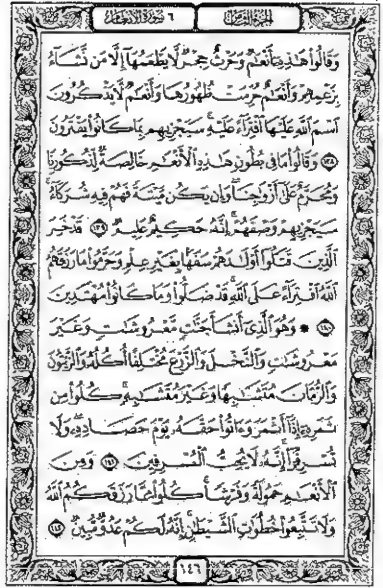 الجزء الثامن ٦ سورة الأنعام
وَقَالُوا۟ هَٰذِهِۦٓ أَنْعَٰمٌ وَحَرْثٌ حِجْرٌ لَّا يَطْعَمُهَآ إِلَّا مَن نَّشَآءُ
بِزَعْمِهِمْ وَأَنْعَٰمٌ حُرِّمَتْ ظُهُورُهَا وَأَنْعَٰمٌ لَّا يَذْكُرُونَ
ٱسْمَ ٱللَّهِ عَلَيْهَا ٱفْتِرَآءً عَلَيْهِ ۚ سَيَجْزِيهِم بِمَا كَانُوا۟ يَفْتَرُونَ
١٣٨ وَقَالُوا۟ مَا فِى بُطُونِ هَٰذِهِ ٱلْأَنْعَٰمِ خَالِصَةٌ لِّذُكُورِنَا
وَمُحَرَّمٌ عَلَىٰٓ أَزْوَٰجِنَا ۖ وَإِن يَكُن مَّيْتَةً فَهُمْ فِيهِ شُرَكَآءُ ۚ
سَيَجْزِيهِمْ وَصْفَهُمْ ۚ إِنَّهُۥ حَكِيمٌ عَلِيمٌ ١٣٩ قَدْ خَسِرَ
ٱلَّذِينَ قَتَلُوٓا۟ أَوْلَٰدَهُمْ سَفَهًۢا بِغَيْرِ عِلْمٍ وَحَرَّمُوا۟ مَا رَزَقَهُمُ
ٱللَّهُ ٱفْتِرَآءً عَلَى ٱللَّهِ ۚ قَدْ ضَلُّوا۟ وَمَا كَانُوا۟ مُهْتَدِينَ
١٤٠ ۞ وَهُوَ ٱلَّذِىٓ أَنشَأَ جَنَّٰتٍ مَّعْرُوشَٰتٍ وَغَيْرَ
مَعْرُوشَٰتٍ وَٱلنَّخْلَ وَٱلزَّرْعَ مُخْتَلِفًا أُكُلُهُۥ وَٱلزَّيْتُونَ
وَٱلرُّمَّانَ مُتَشَٰبِهًا وَغَيْرَ مُتَشَٰبِهٍ ۚ كُلُوا۟ مِن
ثَمَرِهِۦٓ إِذَآ أَثْمَرَ وَءَاتُوا۟ حَقَّهُۥ يَوْمَ حَصَادِهِۦ ۖ وَلَا
تُسْرِفُوٓا۟ ۚ إِنَّهُۥ لَا يُحِبُّ ٱلْمُسْرِفِينَ ١٤١ وَمِنَ
ٱلْأَنْعَٰمِ حَمُولَةً وَفَرْشًا ۚ كُلُوا۟ مِمَّا رَزَقَكُمُ ٱللَّهُ
وَلَا تَتَّبِعُوا۟ خُطُوَٰتِ ٱلشَّيْطَٰنِ ۚ إِنَّهُۥ لَكُمْ عَدُوٌّ مُّبِينٌ ١٤٢
١٤٦